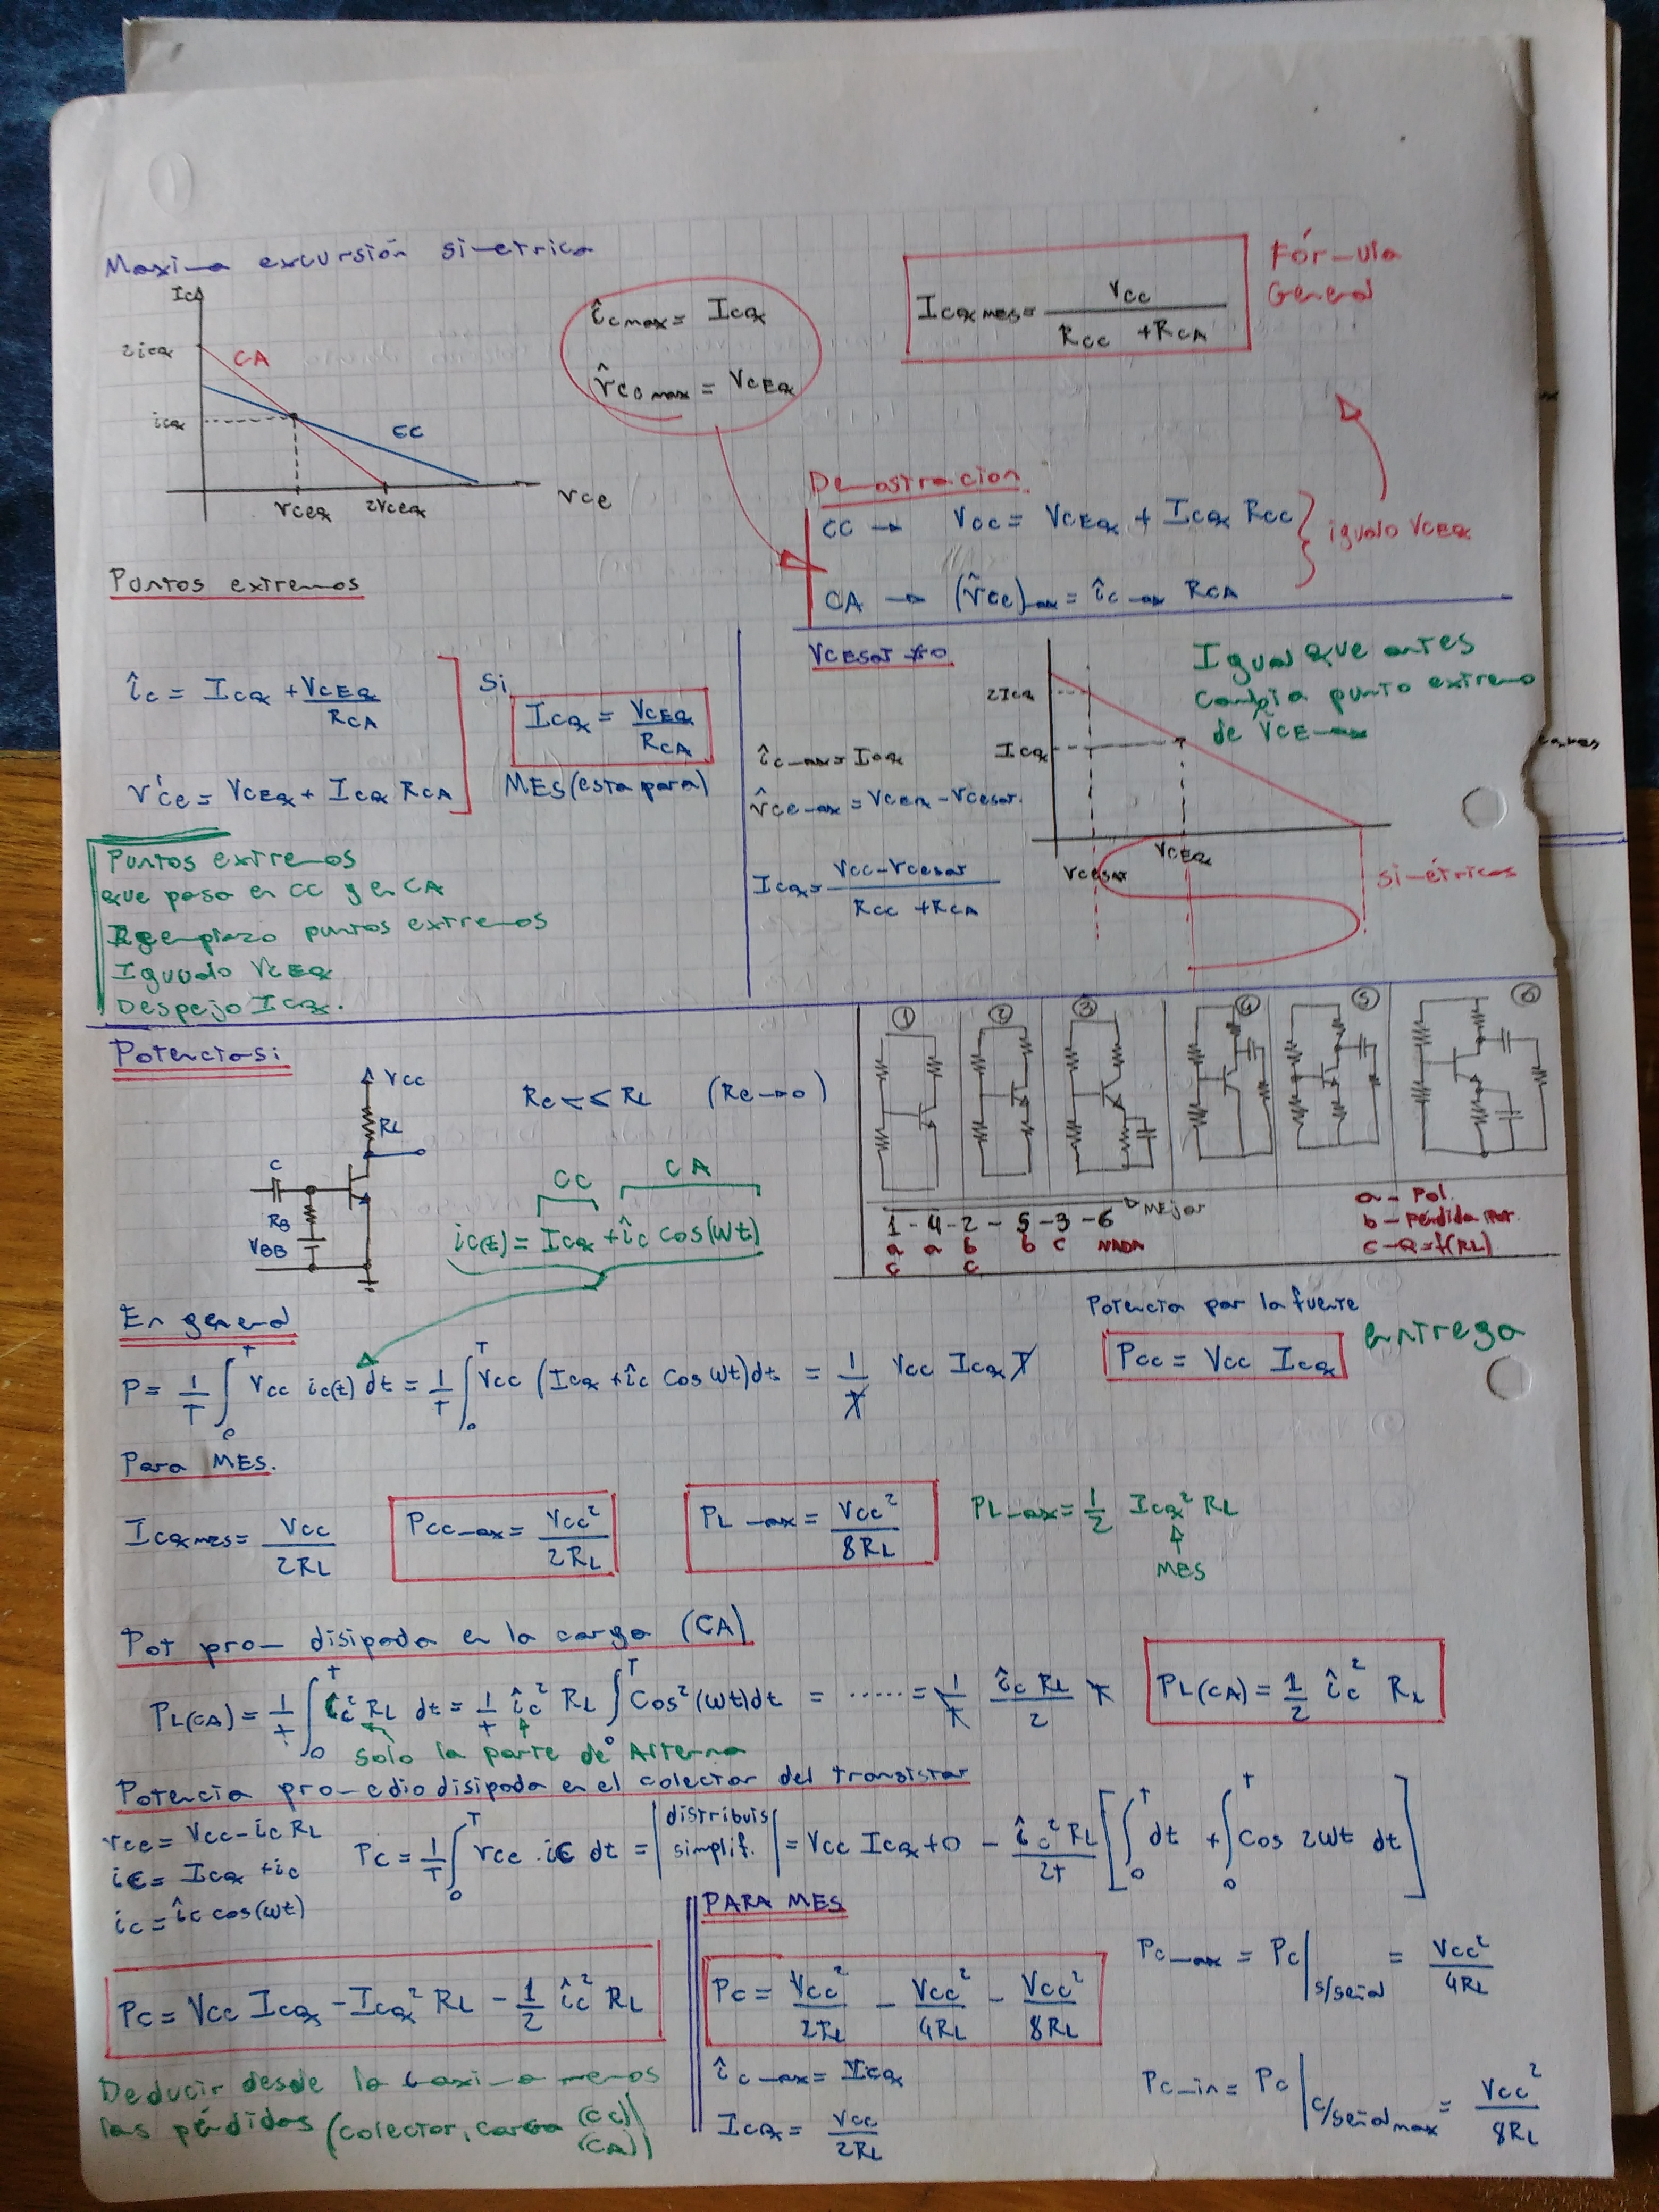 Maxima excursión simetrica
Ic
2icQ
CA
icQ
CC
vceQ
2vceQ
vce
îcmax = IcQ
v̂ce max = VCEQ
ICQ MES = Vcc / (Rcc + RCA)
Fórmula
General
Demostracion
CC → Vcc = VCEQ + ICQ Rcc
igualo VCEQ
CA → (v̂ce)max = îc max RCA
Puntos extremos
îc = ICQ + VCEQ / RCA
v'ce = VCEQ + ICQ RCA
Si
ICQ = VCEQ / RCA
MES (esta para)
Puntos extremos
que pasa en CC y en CA
Reemplazo puntos extremos
Igualo VCEQ
Despejo ICQ.
VCEsat ≠ 0
îc max = ICQ
v̂ce max = VCEQ - Vcesat.
ICQ = (Vcc - Vcesat) / (Rcc + RCA)
2ICQ
ICQ
Vcesat
VCEQ
simétricos
Igual que antes
cambia punto extremo
de v̂CE max
Potencias:
Vcc
RL
C
RB
VBB
Re << RL (Re → 0)
CC
CA
ic(t) = ICQ + îc cos(wt)
1 2 3 4 5 6
1 - 4 - 2 - 5 - 3 - 6 → Mejor
a a b b c NADA
c c
a - Pol.
b - Pérdida Por.
c - Q = f(RL)
En general
P = 1/T ∫0T Vcc ic(t) dt = 1/T ∫0T Vcc (ICQ + îc cos wt) dt = 1/T Vcc ICQ T
Potencia por la fuente
entrega
Pcc = Vcc ICQ
Para MES.
ICQ MES = Vcc / 2RL
Pcc max = Vcc² / 2RL
PL max = Vcc² / 8RL
PL max = 1/2 ICQ² RL
↑
MES
Pot prom disipada en la carga (CA)
PL(CA) = 1/T ∫0T ic² RL dt = 1/T îc² RL ∫0T Cos²(wt) dt = ..... = 1/T îc RL / 2 T
PL(CA) = 1/2 îc² RL
solo la parte de Alterna
Potencia promedio disipada en el colector del transistor
vce = Vcc - ic RL
iC = ICQ + ic
ic = îc cos(wt)
Pc = 1/T ∫0T vce . iC dt = | distribuis simplif. | = Vcc ICQ + 0 - îc² RL / 2T [ ∫0T dt + ∫0T cos 2wt dt ]
Pc = Vcc ICQ - ICQ² RL - 1/2 îc² RL
Deducir desde la maxima menos
las pérdidas (colector, carga (CC) (CA))
PARA MES
Pc = Vcc² / 2RL - Vcc² / 4RL - Vcc² / 8RL
îc max = ICQ
ICQ = Vcc / 2RL
Pc max = Pc | s/señal = Vcc² / 4RL
Pc min = Pc | c/señal max = Vcc² / 8RL